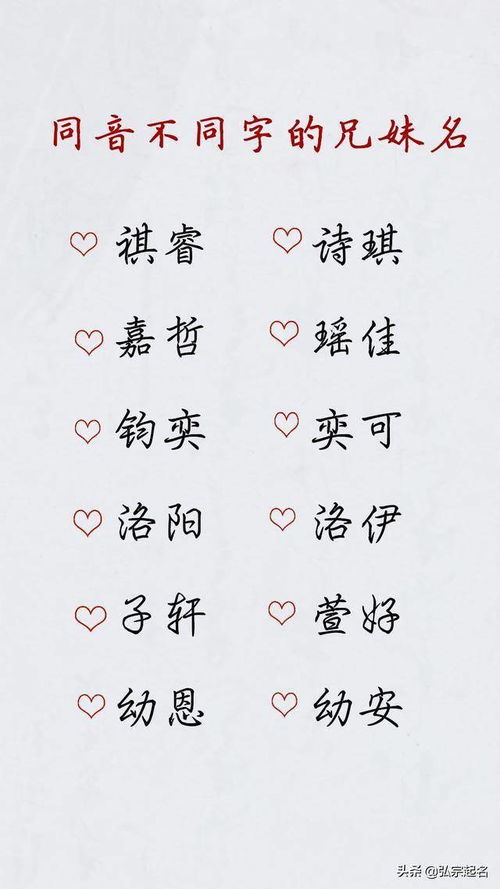 同音不同字的兄妹名
♡ 祺睿 ♡ 诗琪
♡ 嘉哲 ♡ 瑶佳
♡ 钧奕 ♡ 奕可
♡ 洛阳 ♡ 洛伊
♡ 子轩 ♡ 萱好
♡ 幼恩 ♡ 幼安
头条 @弘宗起名